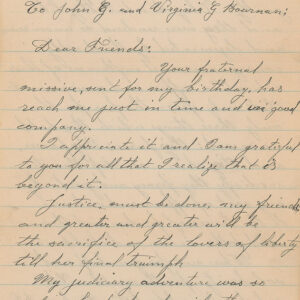 To John G. and Virginia G Bowman;
Dear Friends:
Your fraternal
missive, sent for my birthday, has
reach me just in time and in good
company.
I appriciate it and I am grateful
to you for all that I realize that is
beyond it.
Justice, must be done, my friends
and greater and greater will be
the sacrifice of the lovers of liberty
till her final triumph
My judiciary adventure was so